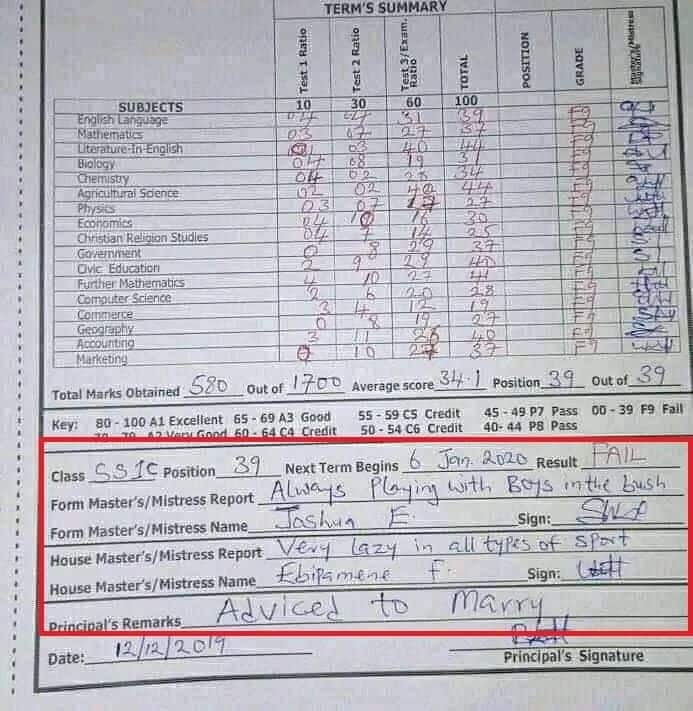 TERM'S SUMMARY
SUBJECTS Test 1 Ratio Test 2 Ratio Test 3/Exam. Ratio TOTAL POSITION GRADE Master's/Mistress Signature
10 30 60 100
English Language 04 04 31 39 F9
Mathematics 03 07 27 37 F9
Literature-In-English 01 03 40 44 F9
Biology 04 08 19 31 F9
Chemistry 04 02 28 34 F9
Agricultural Science 02 02 40 44 F9
Physics 03 07 17 27 F9
Economics 04 10 16 30 F9
Christian Religion Studies 04 7 14 25 F9
Government 0 8 29 37 F9
Civic Education 2 9 29 40 F9
Further Mathematics 4 10 27 41 F9
Computer Science 2 6 20 28 F9
Commerce 3 4 12 19 F9
Geography 0 8 19 27 F9
Accounting 3 11 26 40 F9
Marketing 0 10 27 37 F9
Total Marks Obtained 580 Out of 1700 Average score 34.1 Position 39 Out of 39
Key: 80 - 100 A1 Excellent 65 - 69 A3 Good 55 - 59 C5 Credit 45 - 49 P7 Pass 00 - 39 F9 Fail
70 - 79 A2 Very Good 60 - 64 C4 Credit 50 - 54 C6 Credit 40- 44 P8 Pass
Class SS1C Position 39 Next Term Begins 6 Jan. 2020 Result FAIL
Form Master's/Mistress Report Always Playing with Boys in the bush
Form Master's/Mistress Name Joshua E. Sign:
House Master's/Mistress Report Very lazy in all types of sport
House Master's/Mistress Name Ebipamene f. Sign:
Principal's Remarks Adviced to Marry
Date: 12/12/2019 Principal's Signature